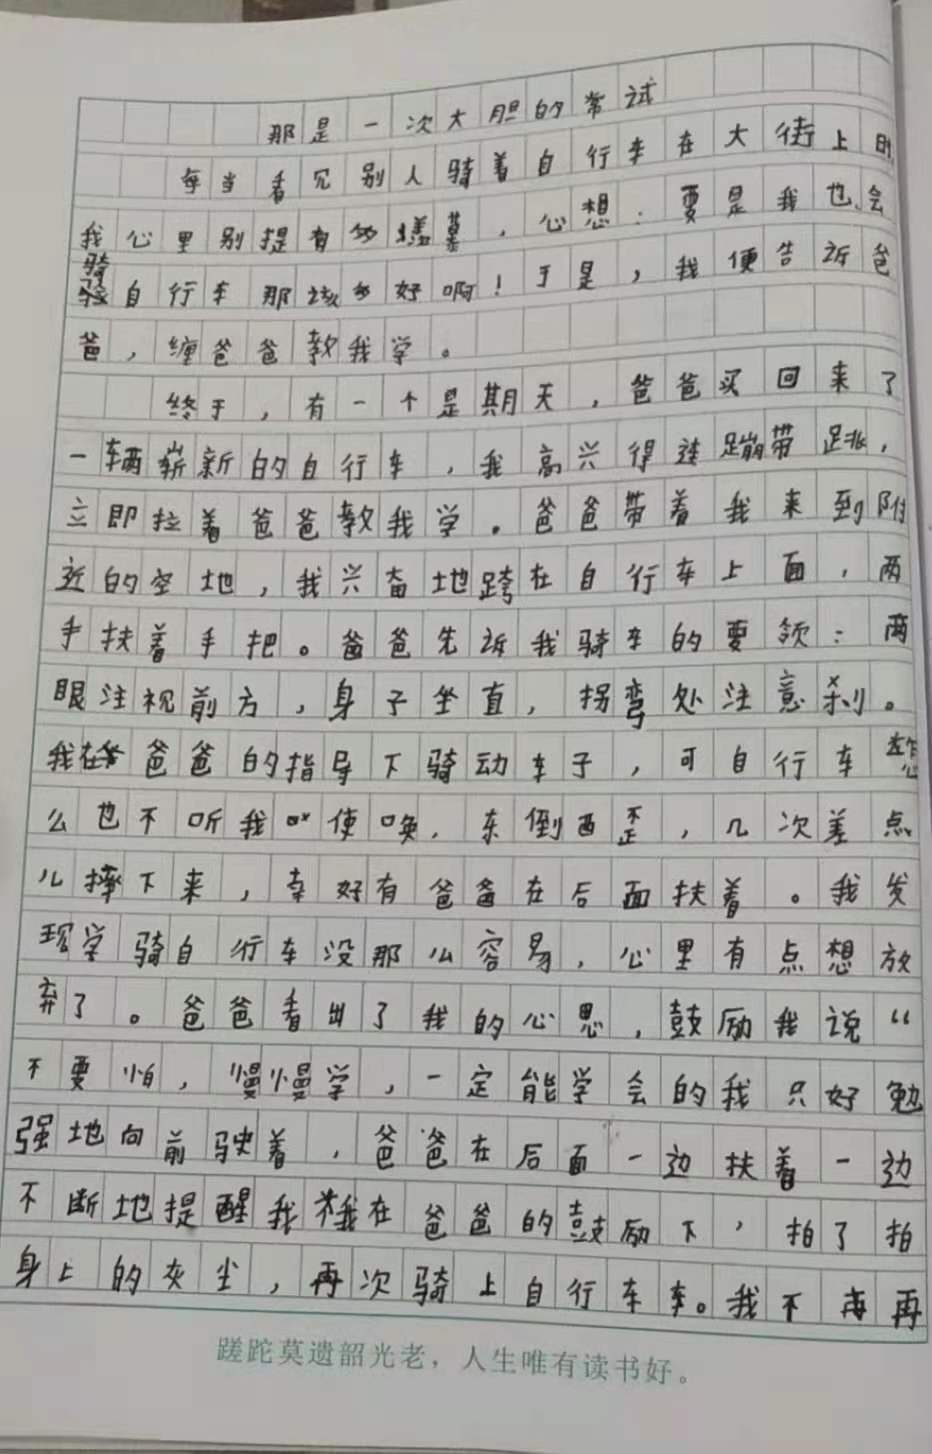 那是一次大胆的常试
每当看见别人骑着自行车在大街上时
我心里别提有多羡慕，心想：要是我也会
骑自行车那该多好啊！于是，我便告诉爸
爸，缠爸爸教我学。
终于，有一个星期天，爸爸买回来了
一辆崭新的自行车，我高兴得连蹦带跳，
立即拉着爸爸教我学。爸爸带着我来到附
近的空地，我兴奋地跨在自行车上面，两
手扶着手把。爸爸先诉我骑车的要领：两
眼注视前方，身子坐直，拐弯处注意刹。
我在爸爸的指导下骑动车子，可自行车怎
么也不听我使唤，东倒西歪，几次差点
儿摔下来，幸好有爸爸在后面扶着。我发
现学骑自行车没那么容易，心里有点想放
弃了。爸爸看出了我的心思，鼓励我说“
不要怕，慢慢学，一定能学会的我只好勉
强地向前驶着，爸爸在后面一边扶着一边
不断地提醒我我在爸爸的鼓励下，拍了拍
身上的灰尘，再次骑上自行车车。我不再再
蹉跎莫遗韶光老，人生唯有读书好。